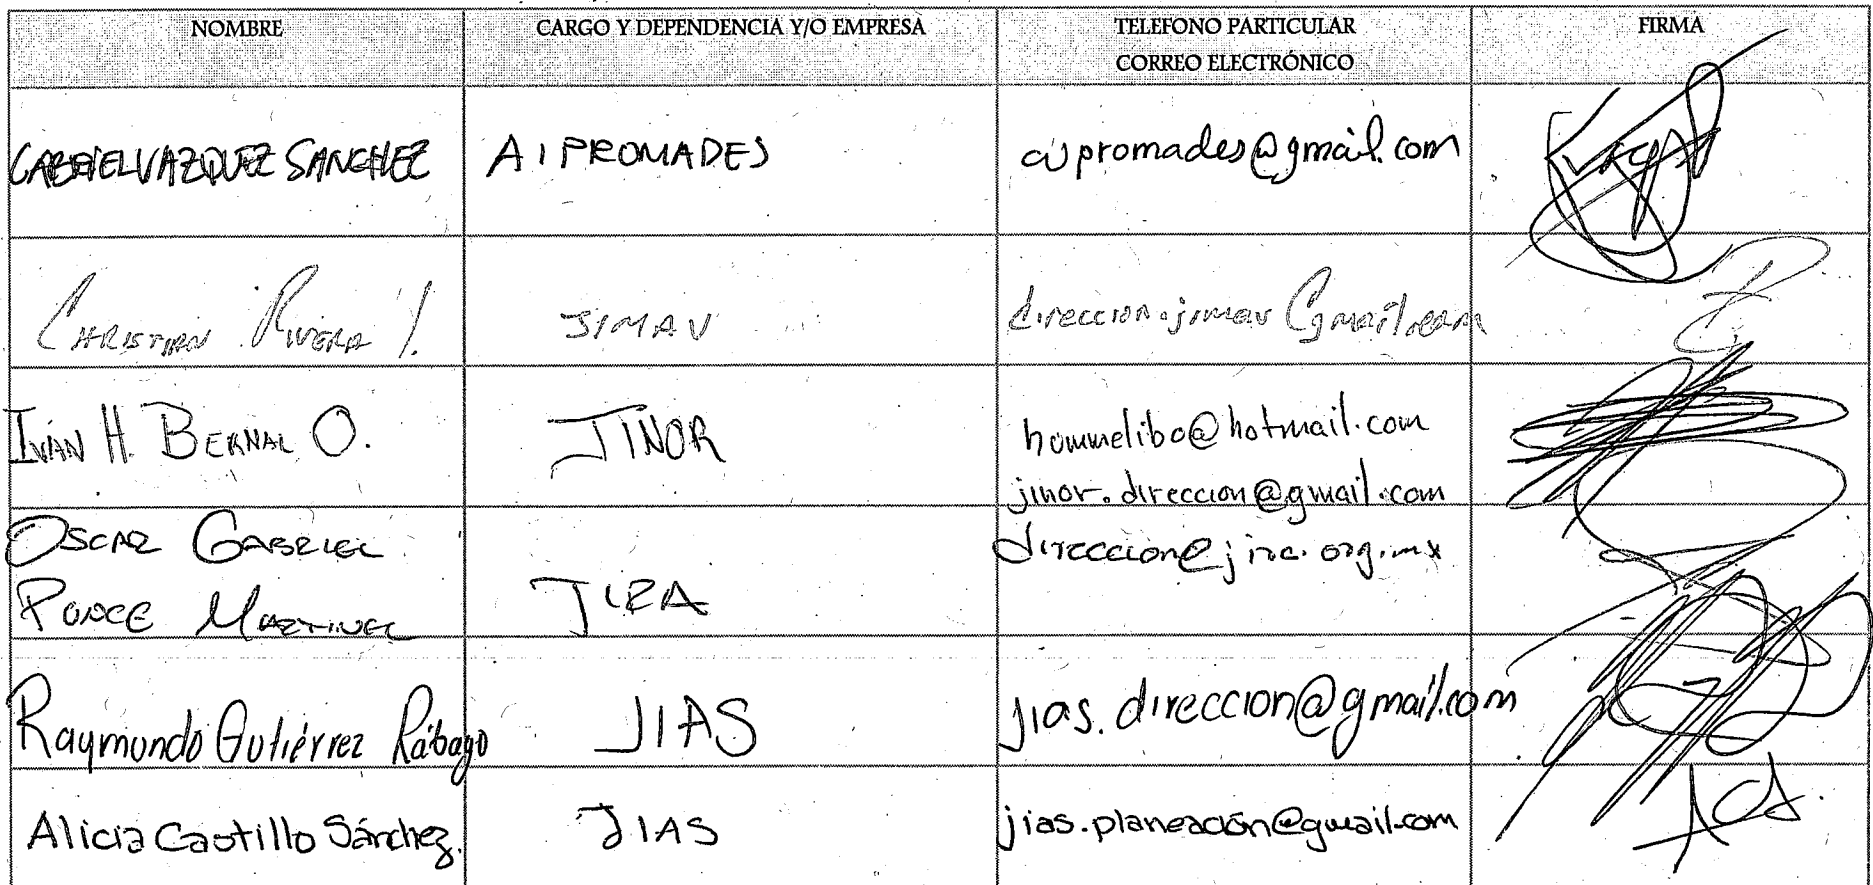 NOMBRE CARGO Y DEPENDENCIA Y/O EMPRESA TELEFONO PARTICULAR FIRMA
CORREO ELECTRÓNICO
GABRIEL VAZQUEZ SANCHEZ AIPROMADES aipromades@gmail.com
CHRISTIAN RIVERA JIMAV direccion.jimav@gmail.com
IVÁN H. BERNAL O. JINOR hommelibo@hotmail.com
jinor.direccion@gmail.com
OSCAR GABRIEL direccion@jira.org.mx
PONCE MARTINEZ JIRA
Raymundo Gutiérrez Rábago JIAS jias.direccion@gmail.com
Alicia Castillo Sánchez. JIAS jias.planeación@gmail.com ACS.